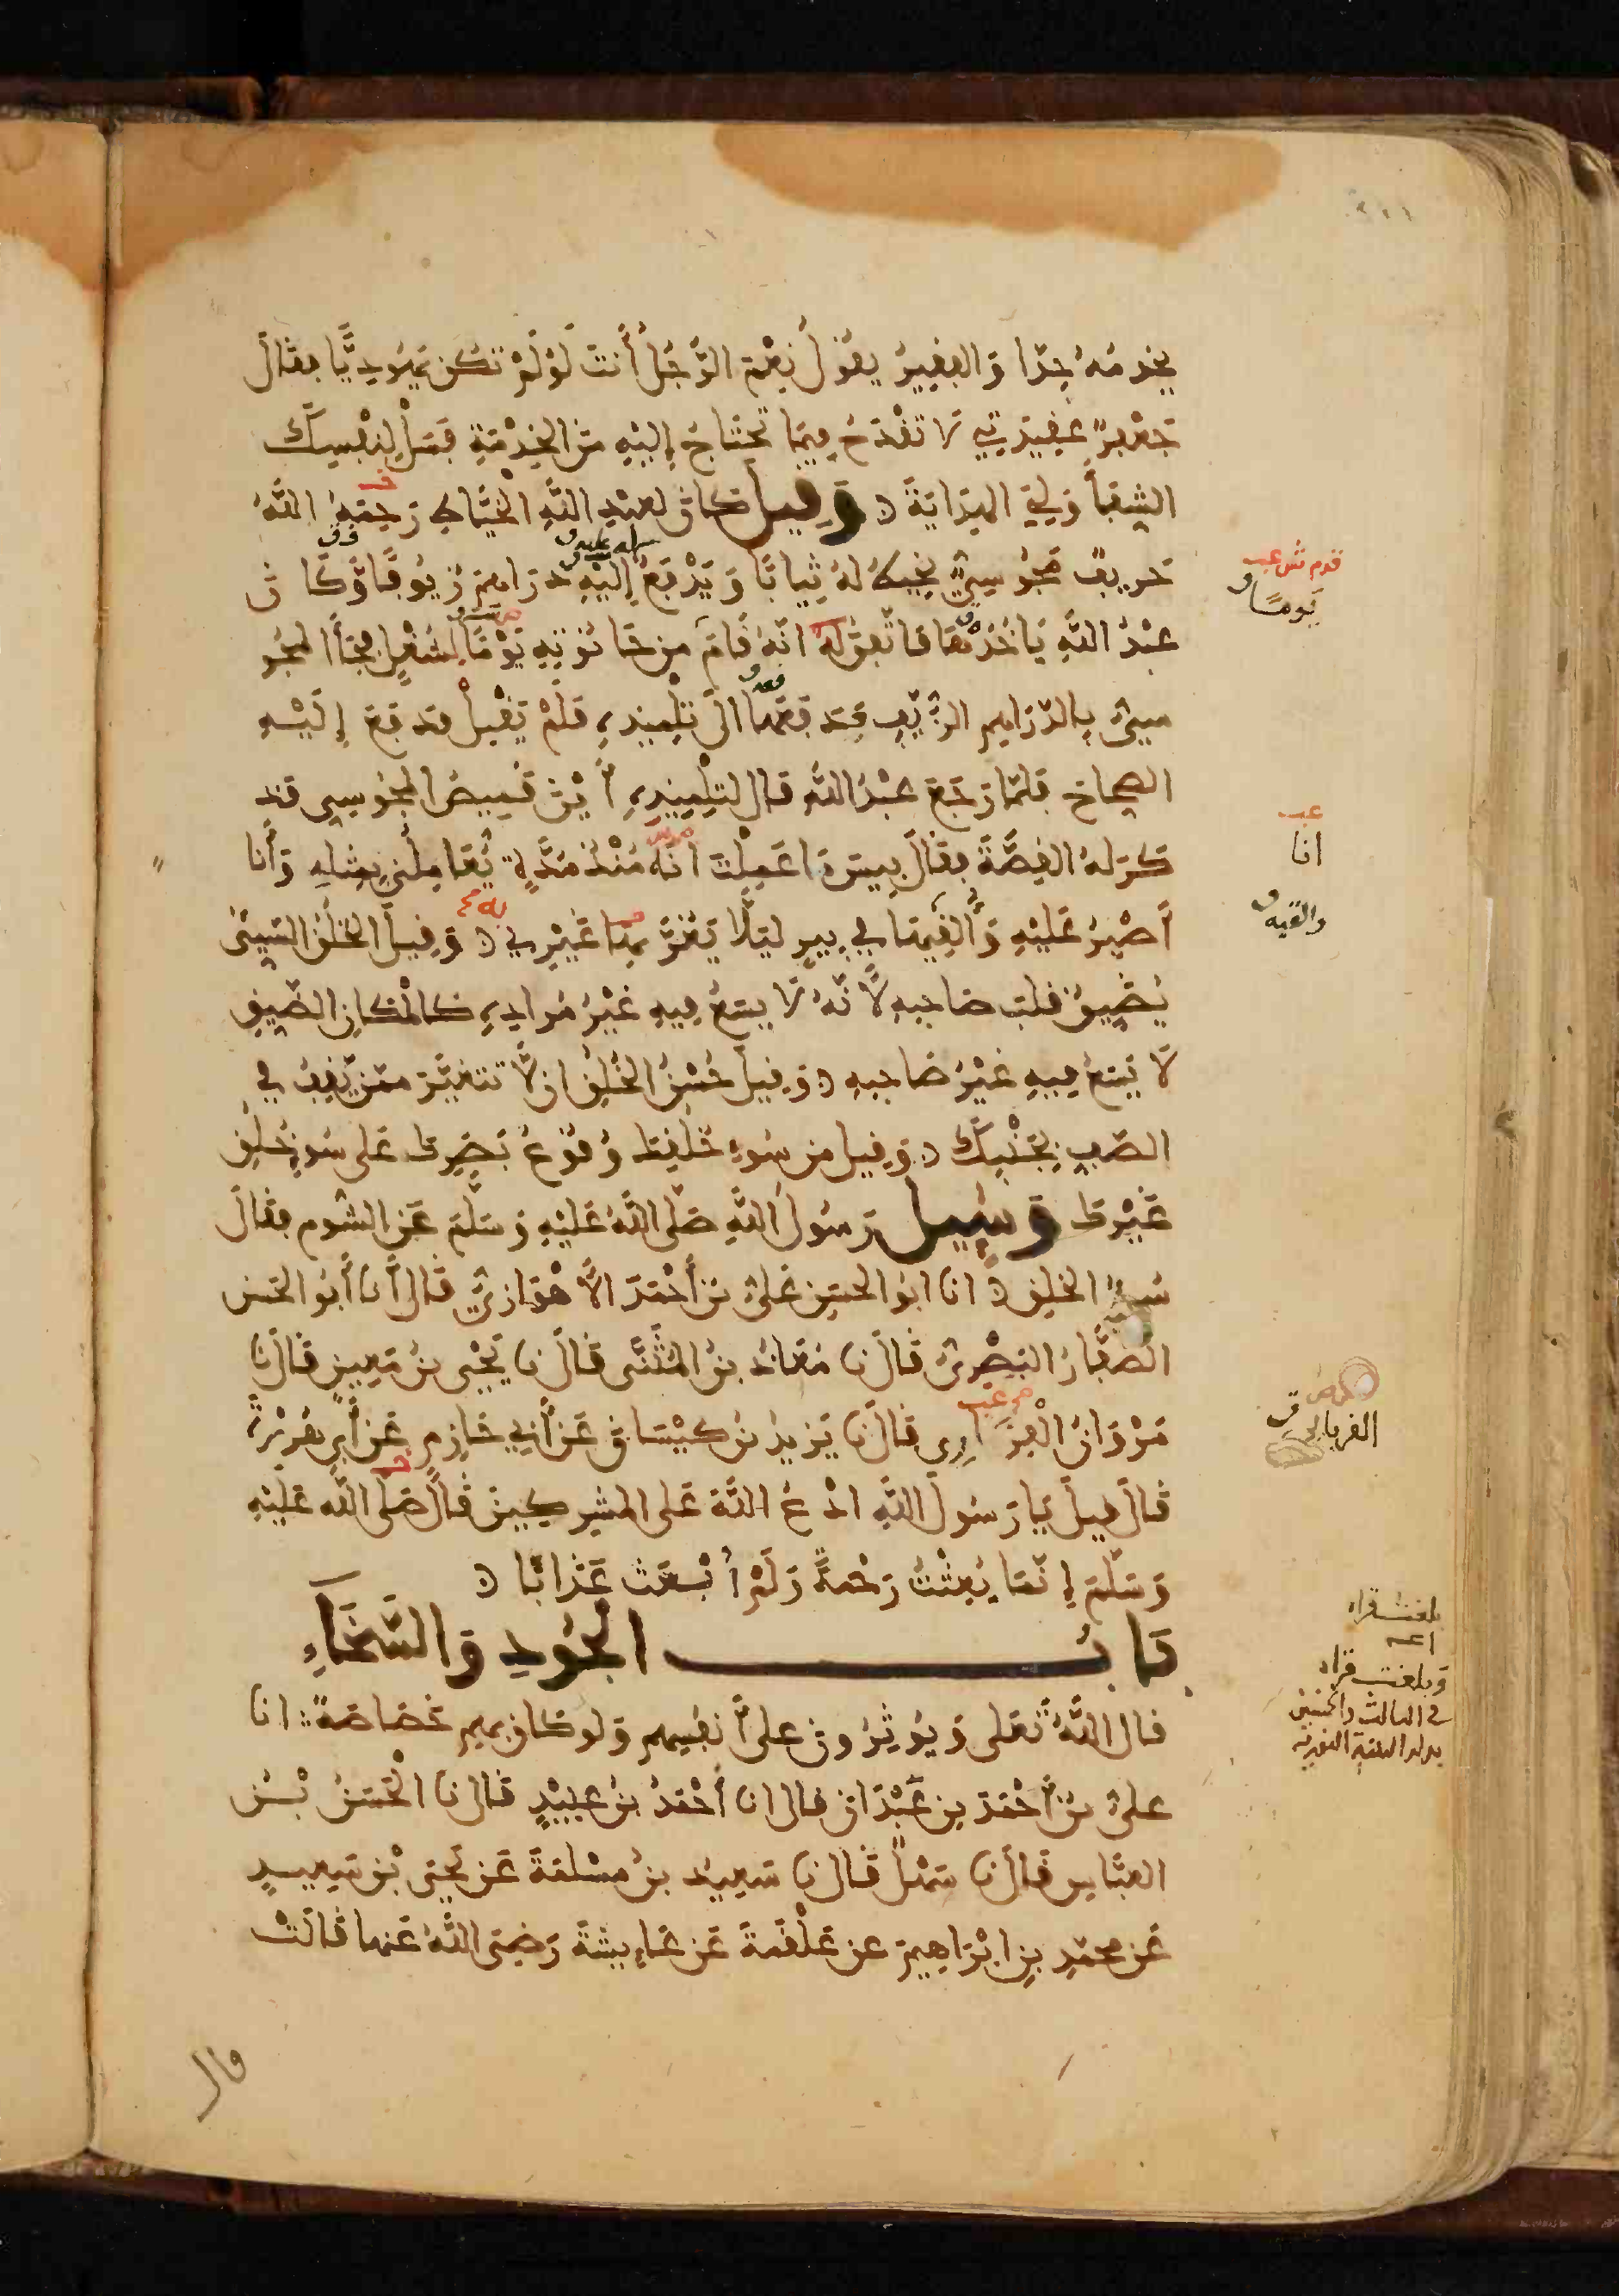 يخدمه جدا والفقير يقول نعم الرجل أنت لو لم تكن يهوديا فقال
عقيدتي لا تقدح فيما تحتاج إليه من الخدمة فسل لنفسك
الشفا ولي الهداية وقيل كان لعبد الله الخياط رحمه الله
حريف مجوسي يخيط له ثيابا ويدفع إليه دراهم زيوفا وكان
عبد الله ياخذها فاتفق له انه قام من حانوته يوما لشغل فجأ المجو
سي بالدراهم الزيف فدفعها الى تلميذه فلم يقبل فدفع إليه
الصحاح فلما رجع عبد الله قال لتلميذه أين قميص المجوسي فذ
كر له القصة فقال بيس ما عملت انه منذ مدة يعاملني بمثله وأنا
أصبر عليه وألقيها في بير ليلا يغر بها غيري وقيل الخلق السيئ
يضيق قلب صاحبه لأنه لا يسع فيه غير مراده كالمكان الضيق
لا يسع فيه غير صاحبه وقيل حسن الخلق ان لا تتغير ممن يقف في
الصف بجنبك وقيل من سوء خلقك وقوع بصرك على سوء خلق
غيرك وسيل رسول الله صلى الله عليه وسلم عن الشوم فقال
سوء الخلق انا ابو الحسن علي بن أحمد الأهوازي قال أنا أبو الحسن
الصفار البصري قال نا معاذ بن المثنى قال نا يحيى بن معين قال نا
مروان الفزاري قال نا يزيد بن كيسان عن أبي حازم عن أبي هريرة
قال قيل يا رسول الله ادع الله على المشركين قال صلى الله عليه
وسلم إنما بعثت رحمة ولم أبعث عذابا
باب الجود والسخاء
قال الله تعلى ويوثرون على أنفسهم ولو كان بهم خصاصة انا
علي بن أحمد بن عبدان قال انا أحمد بن عبيد قال نا الحسن بن
العباس قال نا سهل قال نا سعيد بن مسلمة عن يحيى بن سعيد
عن محمد بن ابراهيم عن علقمة عن عايشة رضي الله عنها قالت
قال
يوما
انا
والقيه
بلغت قراه
وبلغت قراه